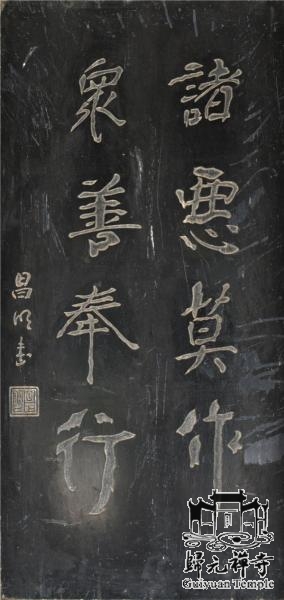 諸惡莫作
衆善奉行
昌明書
歸元禪寺
Guiyuan Temple